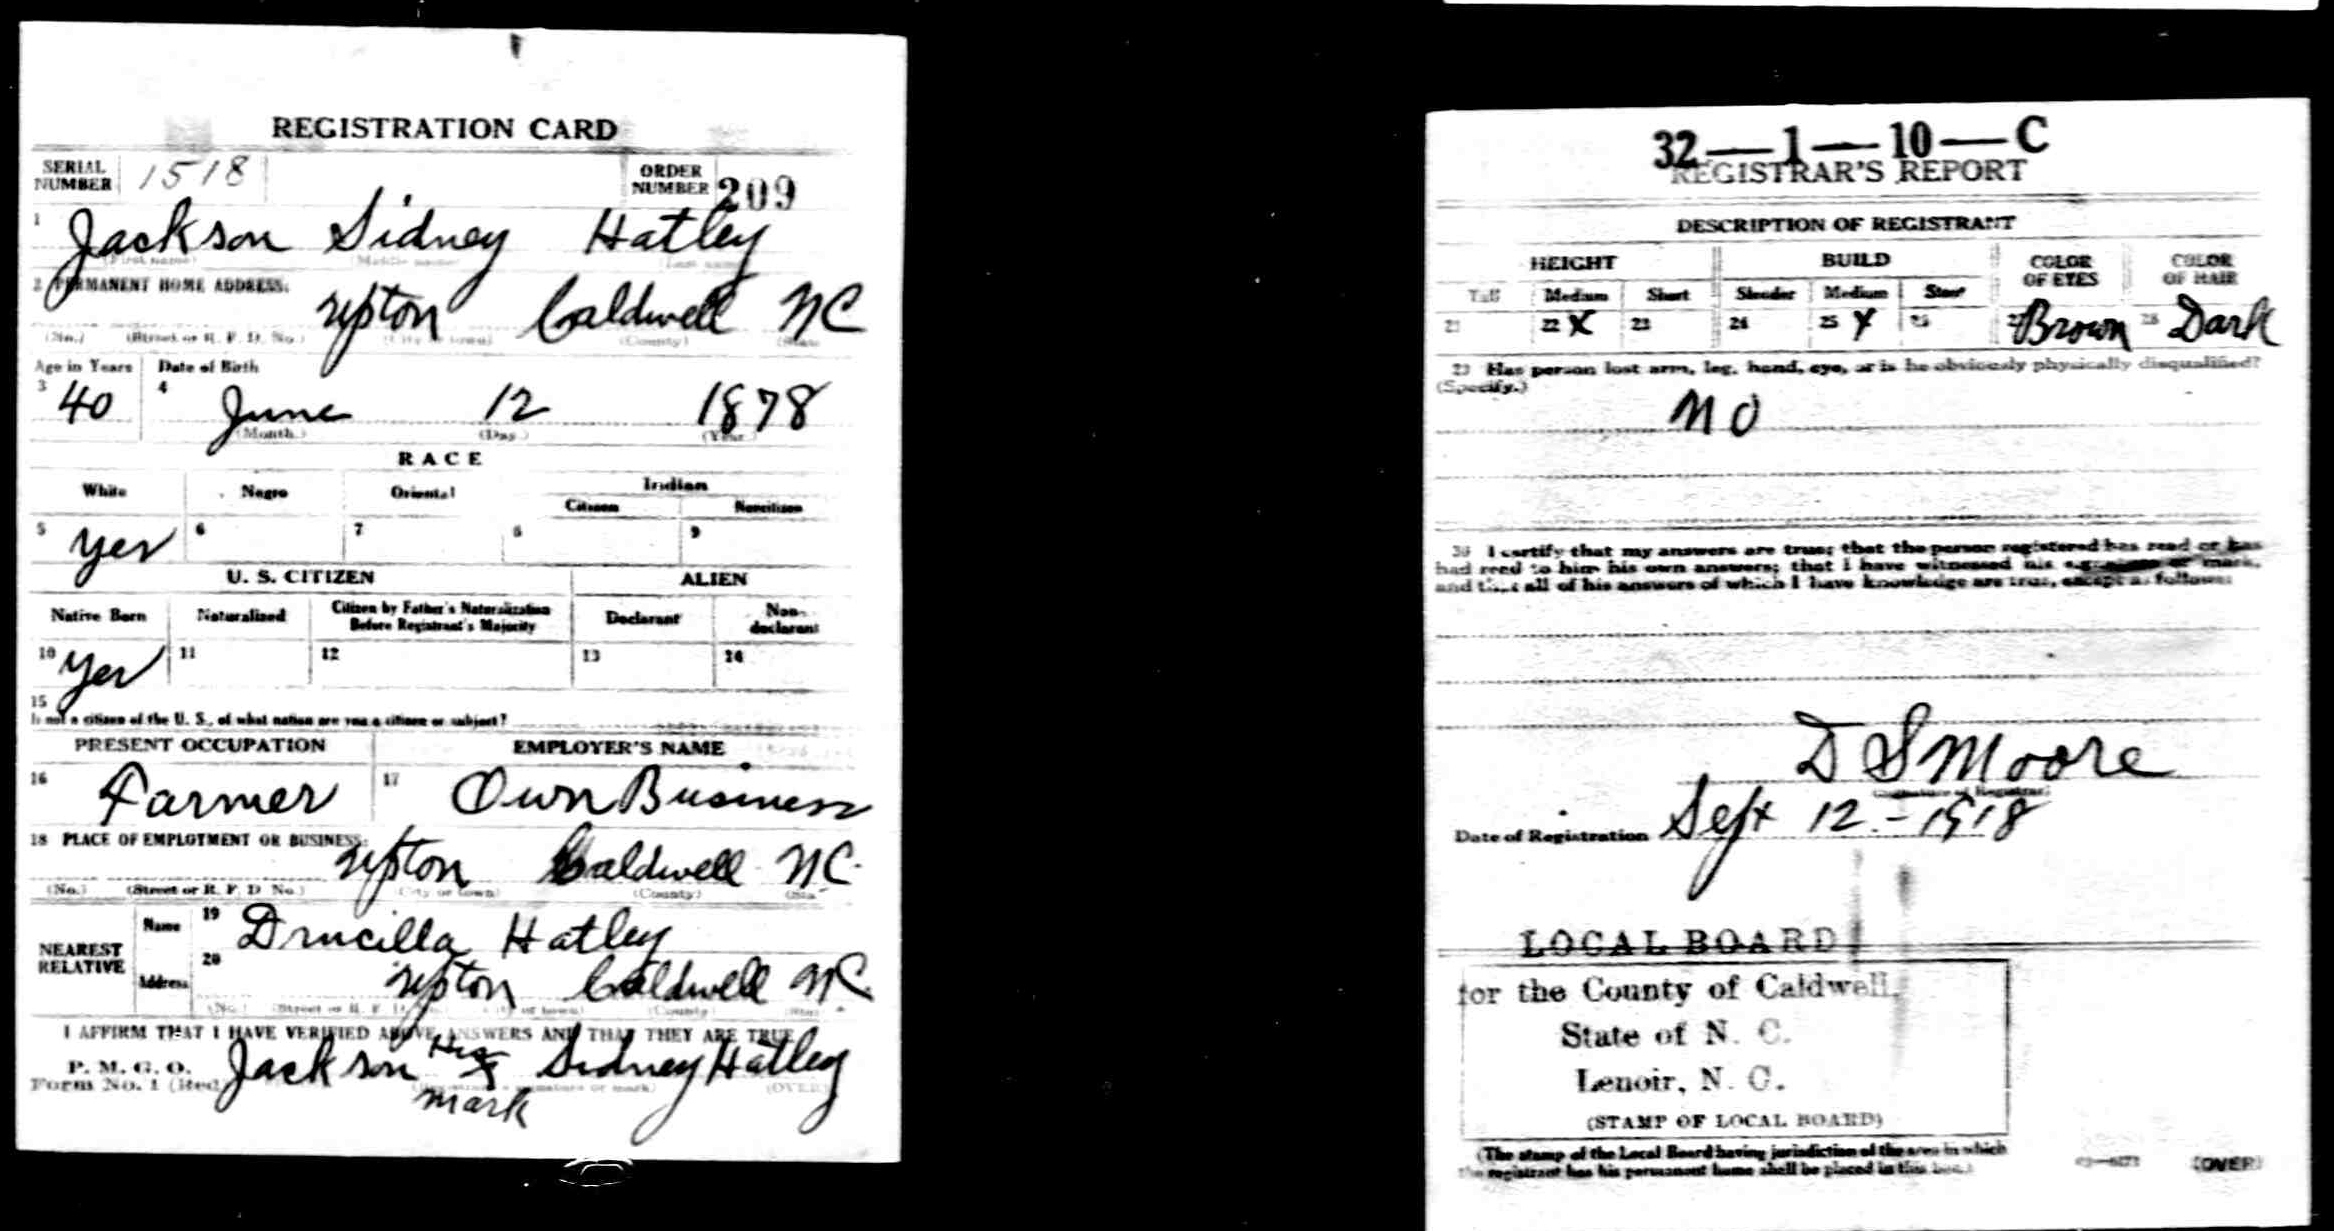 REGISTRATION CARD
SERIAL NUMBER 1518 ORDER NUMBER 209
1 Jackson Sidney Hatley
(First name) (Middle name) (Last name)
2 PERMANENT HOME ADDRESS:
Upton Caldwell NC
(No.) (Street or R. F. D. No.) (City or town) (County) (State)
Age in Years Date of Birth
3 40 4 June 12 1878
(Month.) (Day.) (Year.)
RACE
White Negro Oriental Indian
Citizen Noncitizen
5 yes 6 7 8 9
U. S. CITIZEN ALIEN
Native Born Naturalized Citizen by Father's Naturalization Before Registrant's Majority Declarant Non-declarant
10 yes 11 12 13 14
15
If not a citizen of the U. S., of what nation are you a citizen or subject?
PRESENT OCCUPATION EMPLOYER'S NAME
16 Farmer 17 Own Business
18 PLACE OF EMPLOYMENT OR BUSINESS:
Upton Caldwell NC.
(No.) (Street or R. F. D. No.) (City or town) (County) (State)
NEAREST RELATIVE
Name 19 Drucilla Hatley
Address 20 Upton Caldwell NC.
(No.) (Street or R. F. D. No.) (City or town) (County) (State)
I AFFIRM THAT I HAVE VERIFIED ABOVE ANSWERS AND THAT THEY ARE TRUE
P. M. G. O.
Form No. 1 (Red) Jackson His X mark Sidney Hatley
(Registrant's signature or mark) (OVER)
32—1—10—C
REGISTRAR'S REPORT
DESCRIPTION OF REGISTRANT
HEIGHT BUILD COLOR OF EYES COLOR OF HAIR
Tall Medium Short Slender Medium Stout
21 22 X 23 24 25 X 26 27 Brown 28 Dark
29 Has person lost arm, leg, hand, eye, or is he obviously physically disqualified?
(Specify.)
NO
30 I certify that my answers are true; that the person registered has read or has
had read to him his own answers; that I have witnessed his signature or mark,
and that all of his answers of which I have knowledge are true, except as follows:
D S Moore
(Signature of Registrar)
Date of Registration Sept 12 - 1918
LOCAL BOARD
for the County of Caldwell,
State of N. C.
Lenoir, N. C.
(STAMP OF LOCAL BOARD)
(The stamp of the Local Board having jurisdiction of the area in which
the registrant has his permanent home shall be placed in this box.)
(OVER)